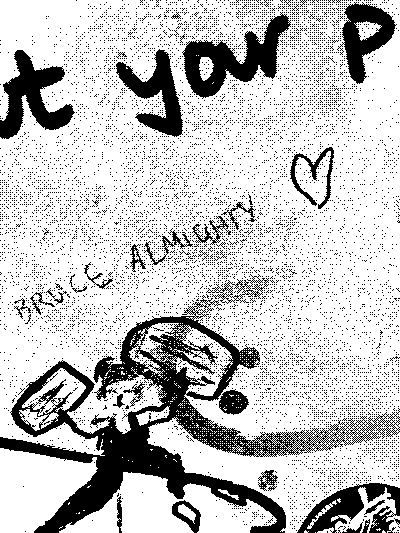 ut your p
BRUCE ALMIGHTY